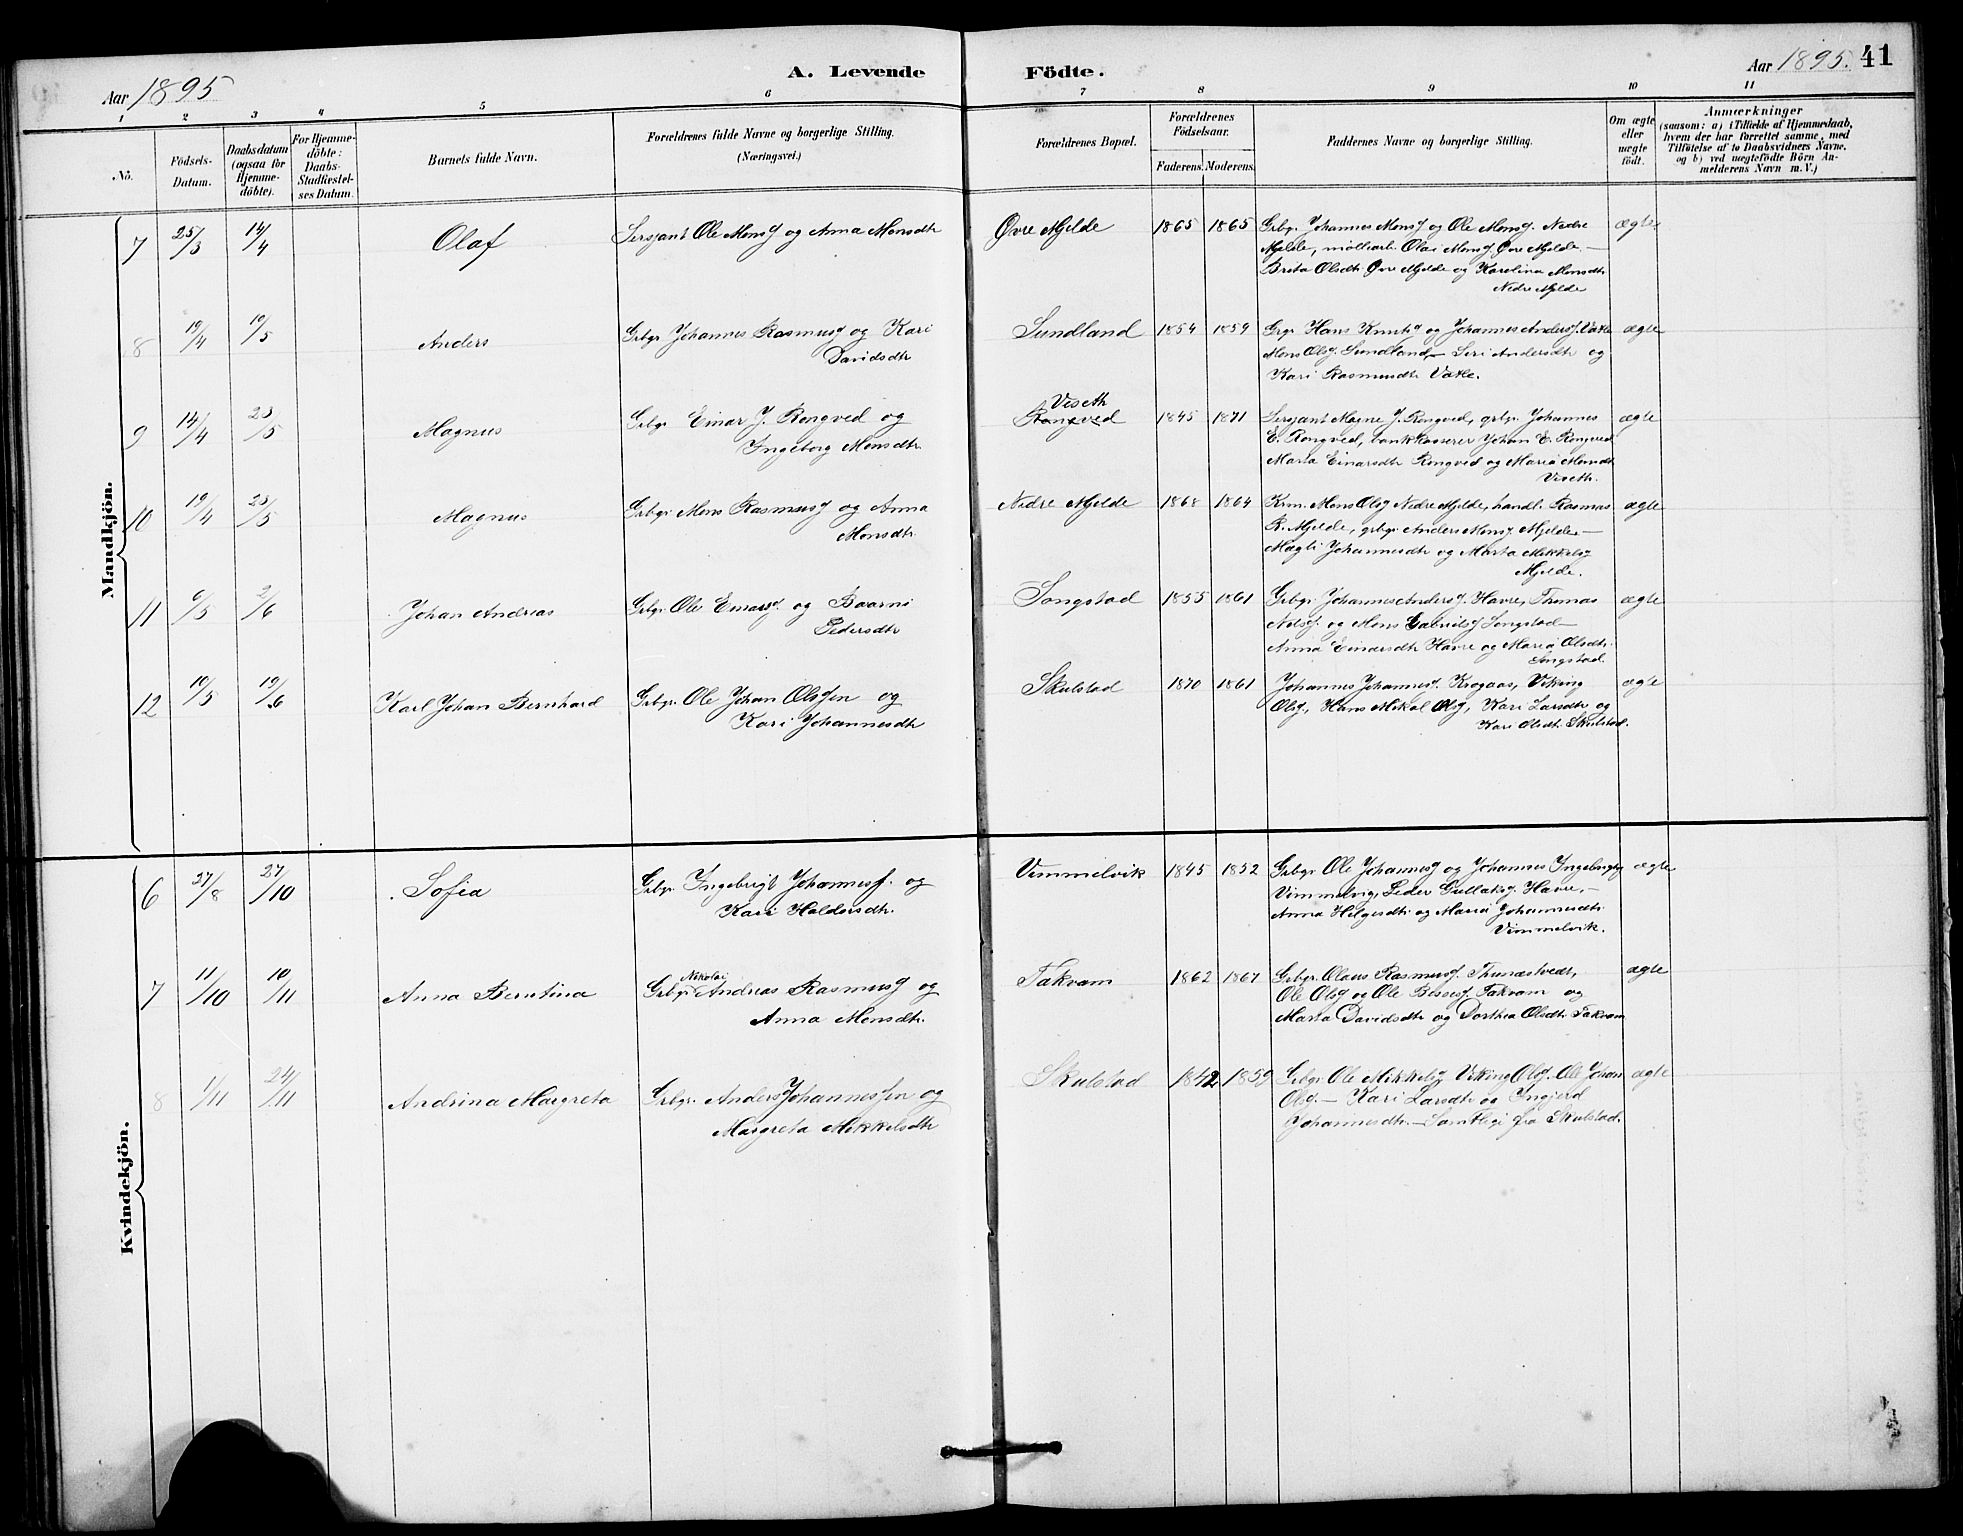 Aar 1895
A. Levende Födte.
Aar 1895. 41
1 2 3 4 5 6 7 8 9 10 11
No.
Födsels-Datum.
Daabsdatum (ogsaa for Hjemmedöbte).
For Hjemmedöbte: Daabs Stadfæstelses Datum.
Barnets fulde Navn.
Forældrenes fulde Navne og borgerlige Stilling.
(Næringsvei.)
Forældrenes Bopæl.
Forældrenes Födselsaar.
Faderens. Moderens.
Faddernes Navne og borgerlige Stilling.
Om ægte eller uægte födt.
Anmærkninger
(saasom: a) i Tilfælde af Hjemmedaab,
hvem der har forrettet samme, med
Tilföielse af to Daabsvidners Navne.
og b) ved uægtefödte Börn Anmelderens Navn m.V.)
Mandkjön.
7 25/3 14/4 Olaf Sersjant Ole Monsf og Anna Monsdtr Øvre Mjelde 1865 1865 Grbgr Johannes Monsf og Ole Monsf. Nedre ægte
Mjelde, møllearb. Olai Monsf. Øvre Mjelde —
Brita Olsdtr Øvre Mjelde og Karolina Monsdtr
Nedre Mjelde
8 19/4 19/5 Anders Grbgr Johannes Rasmusf og Kari Sundland 1854 1859 Grgr Hans Knutsf og Johannes Andersf. Vatle ægte
Davidsdtr
Mons Olsf. Sundland — Seri Andersdtr og
Kari Rasmusdtr Vatle.
9 14/4 23/5 Magnus Grbgr Einar J. Rongved og Rongved 1845 1871 Sersjant Magne J. Rongved, grbgr. Johannes ægte
Viseth
Ingeborg Monsdtr.
E. Rongved, bankkasserer Johan E. Rongved
Marta Einarsdtr Rongved og Maria Monsdtr
Viseth.
10 19/4 23/5 Magnus Grbgr Mons Rasmusf og Anna Nedre Mjelde 1868 1864 Krm. Mons Olsf Nedre Mjelde, handl. Rasmus ægte
Monsdtr.
R. Mjelde, grbgr Anders Monsf. Mjelde —
Magli Johannesdtr og Marta Mikkelsf
Mjelde.
11 6/5 2/6 Johan Andreas Grbgr Ole Einarsf. og Baarni Songstad 1855 1861 Grbgr Johannes Andersf. Havre, Thomas ægte
Pedersdtr
Nilsf. og Mons Gabrielsf Songstad —
Anna Einarsdtr Havre og Maria Olsdtr.
Songstad.
12 10/5 19/6 Karl Johan Bernhard Grbgr. Ole Johan Olssen og Skulstad 1870 1861 Johannes Johannesf. Krogaas, Viking ægte
Kari Johannesdtr
Olsf., Hans Mikal Olsf, Kari Larsdtr og
Kari Olsdtr Skulstad.
Kvindekjön.
6 27/8 27/10 Sofia Grbgr Ingebrigt Johannesf. og Vimmelvik 1845 1852 Grbgr Ole Johannesf og Johannes Ingebrigtsf ægte
Kari Haldorsdtr.
Vimmelvig, Peder Gullaksf. Havre, —
Anna Helgesdtr. og Maria Johannesdtr.
Vimmelvik.
7 11/10 10/11 Anna Berntina Grbgr Andreas Rasmusf og Takvam 1862 1867 Grbgr Olaus Rasmusf. Thunestvedt, ægte
Nikolai
Anna Monsdtr.
Ole Olsf og Ole Bessesf. Takvam og
Marta Davidsdtr og Dorthea Olsdtr Takvam
8 1/11 24/11 Andrina Margreta Grbgr. Anders Johannessen og Skulstad 1842 1859 Grbgr Ole Mikkelsf Viking Olsf. Ole Johan ægte
Margreta Mikkelsdtr
Olsf. — Kari Larsdtr og Ingjerd
Johannesdtr. — Samtlige fra Skulstad.